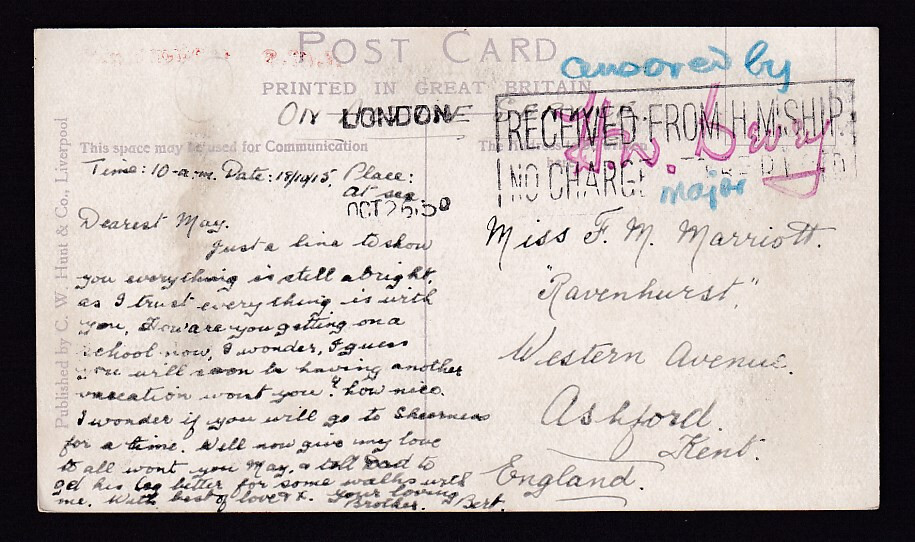 POST CARD
PRINTED IN GREAT BRITAIN
ON ACTIVE SERVICE
LONDON
censored by
RECEIVED FROM H.M. SHIP.
NO CHARGE
Devey
Major
This space may be used for Communication
Time: 10-a.m. Date: 18/10/15. Place:
At sea
OCT 25
Dearest May.
Just a line to show
you everything is still alright,
as I trust everything is with
you, How are you getting on a
school now, I wonder, I guess
you will soon be having another
vacation wont you? how nice.
I wonder if you will go to Sheerness
for a time. Well now give my love
to all wont you May, & tell Dad to
get his leg better for some walks with
me. With best of love & x. your loving
Brother. Bert.
Miss F. M. Marriott.
"Ravenhurst,"
Western Avenue.
Ashford.
Kent.
England.
Published by C. W. Hunt & Co., Liverpool